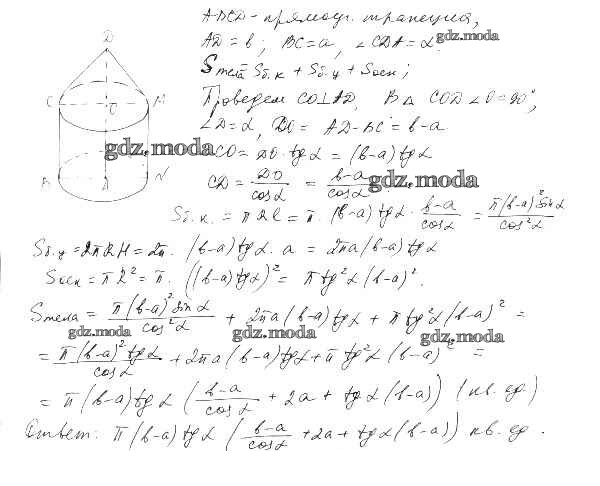 ABCD - прямоуг. трапеция,
AD = b; BC = a, ∠CDA = α. gdz.moda
Sтела Sб.к + Sб.ц + Sосн;
Проведем CO⊥AD, В △ COD ∠O = 90°,
∠D = α, DO = AD - BC = b - a
CO = DO · tg α = (b-a) tg α
gdz.moda
CD = DO/cos α = b-a/cos α gdz.moda
Sб.к. = πRl = π · (b-a) tg α · b-a/cos α = π(b-a)² sin α/cos² α
Sб.ц = 2πRH = 2π · (b-a) tg α · a = 2πa(b-a) tg α
Sосн = πR² = π · ((b-a) tg α)² = π tg² α (b-a)².
Sтела = π(b-a)² sin α/cos² α + 2πa(b-a) tg α + π tg² α (b-a)² =
gdz.moda gdz.moda gdz.moda
= π(b-a)² tg α/cos α + 2πa(b-a) tg α + π tg² α (b-a)² =
= π(b-a) tg α (b-a/cos α + 2a + tg α (b-a)) (кв. ед.)
Ответ: π(b-a) tg α (b-a/cos α + 2a + tg α (b-a)) кв. ед.
D
C O M
B A N